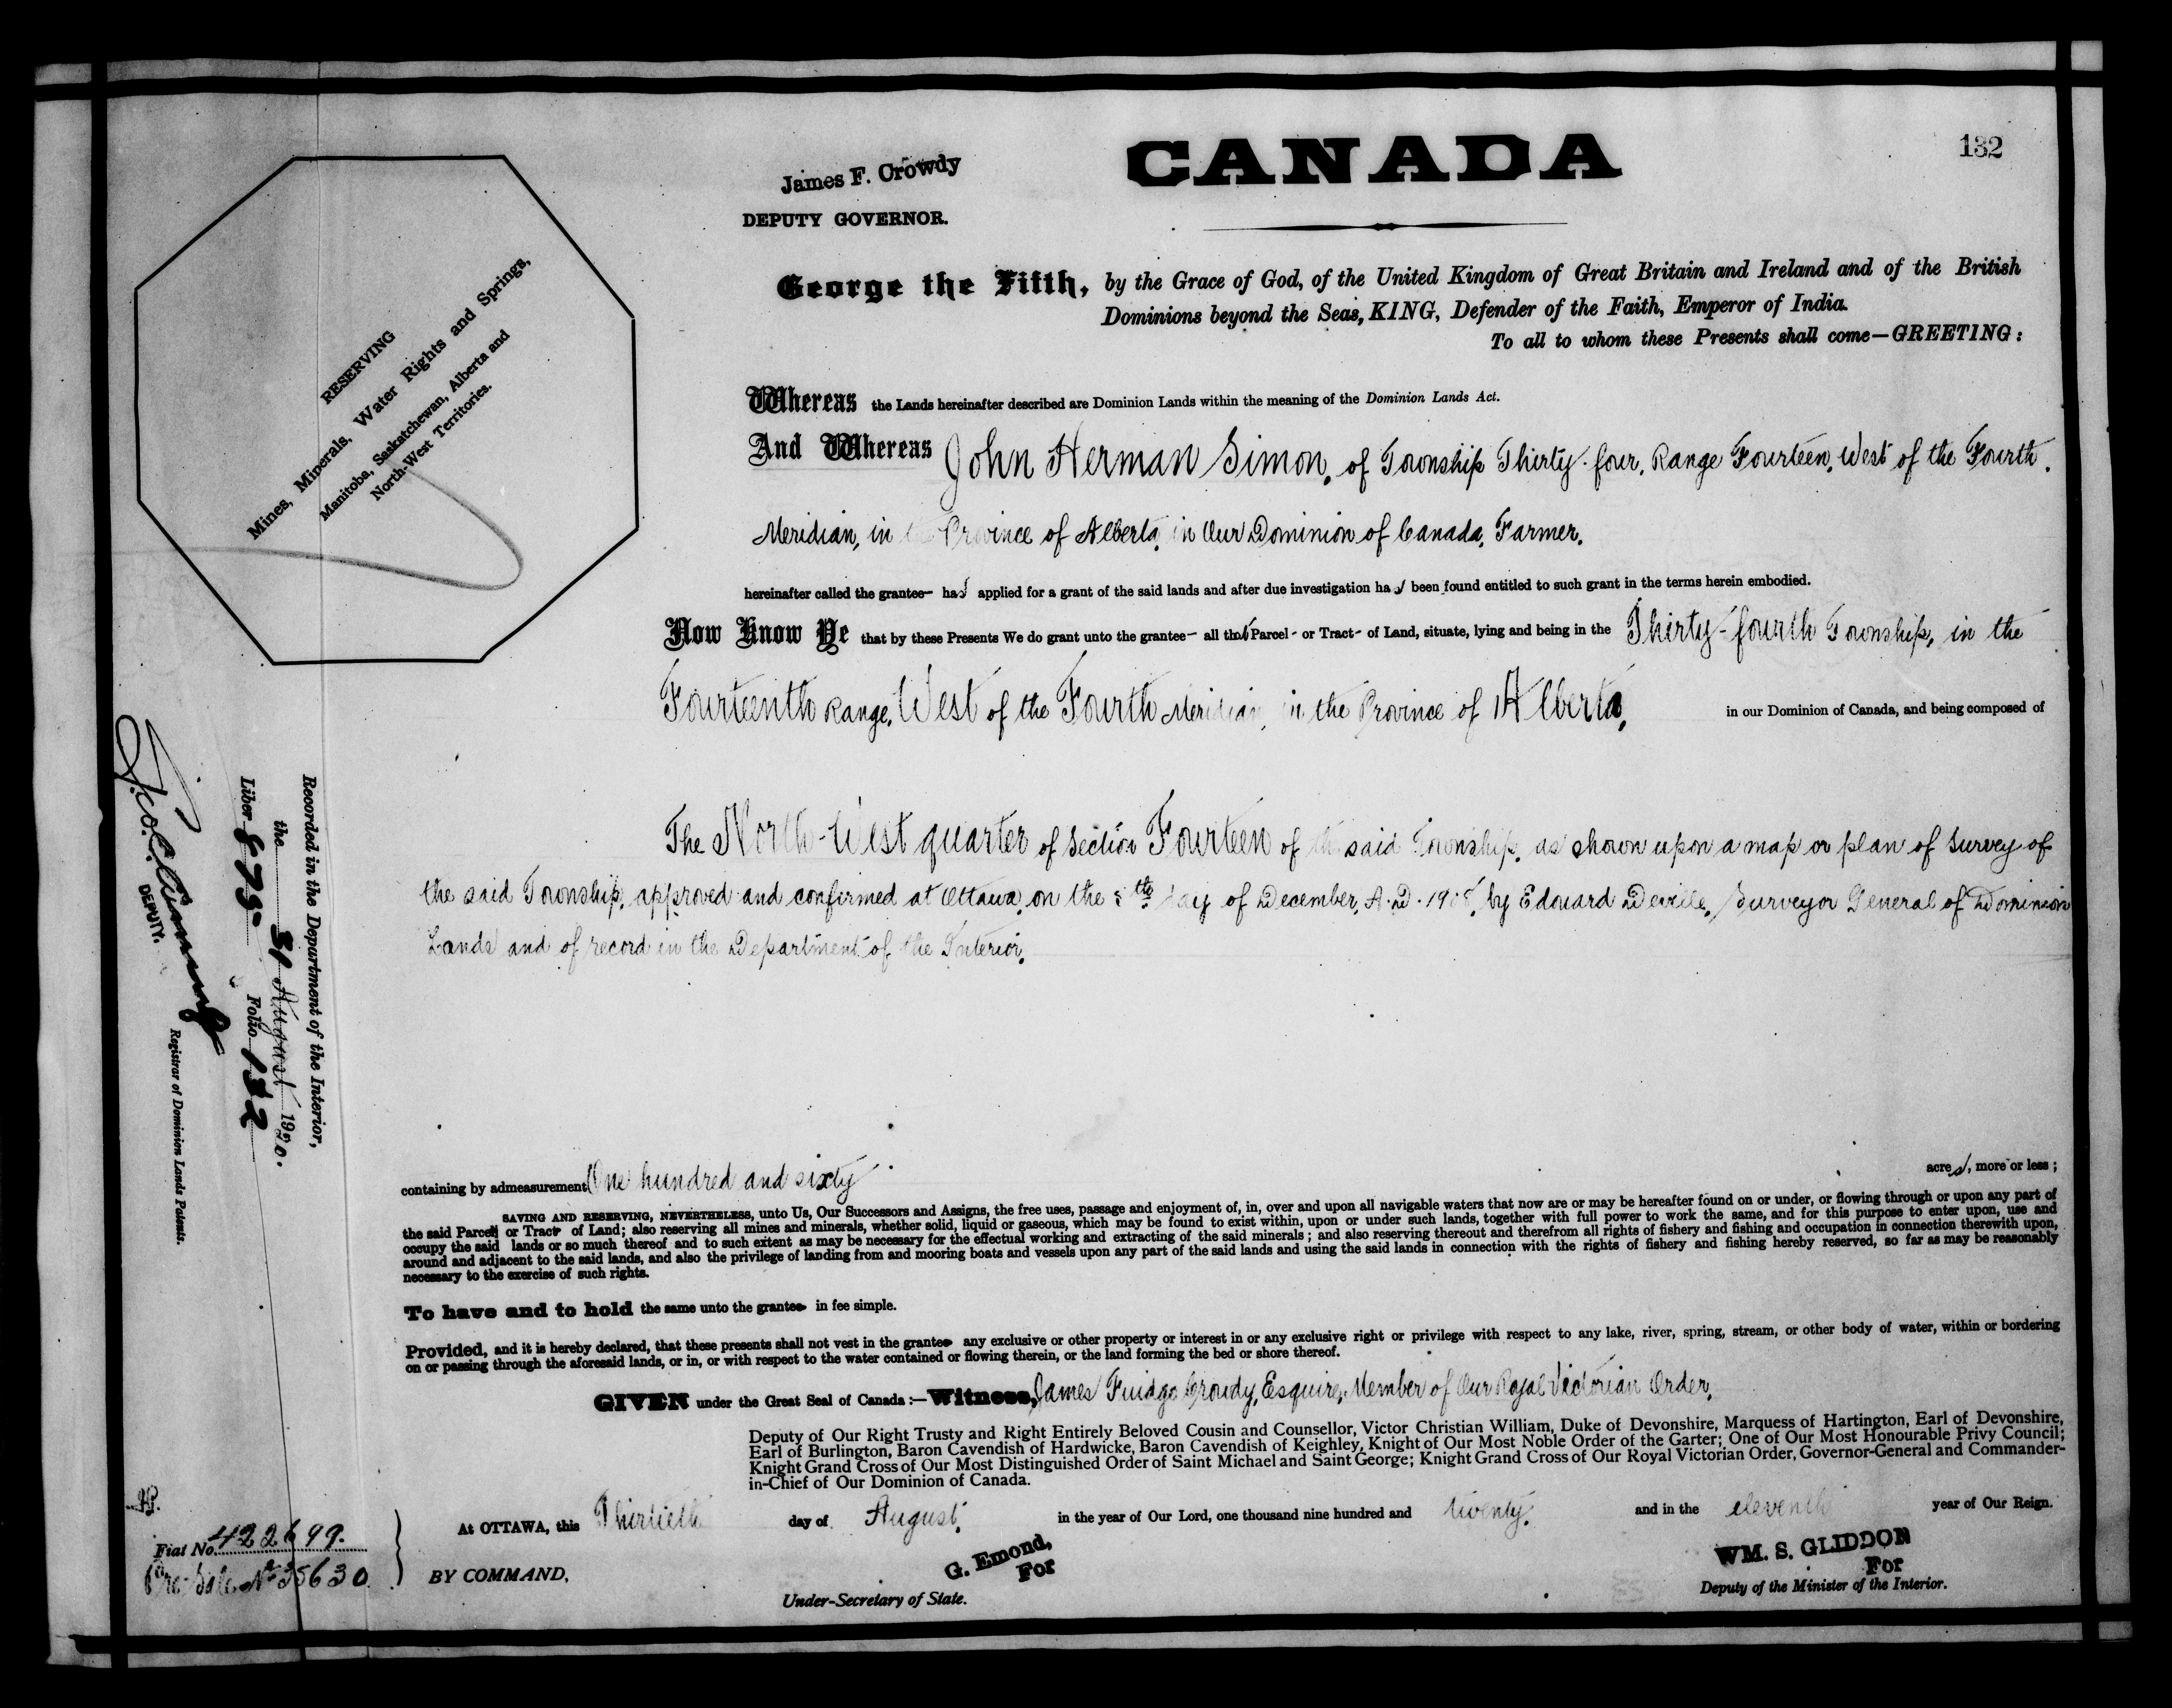 132
CANADA
James F. Crowdy
DEPUTY GOVERNOR.
George the Fifth, by the Grace of God, of the United Kingdom of Great Britain and Ireland and of the British
Dominions beyond the Seas, KING, Defender of the Faith, Emperor of India.
To all to whom these Presents shall come—GREETING:
RESERVING
Mines, Minerals, Water Rights and Springs,
Manitoba, Saskatchewan, Alberta and
North-West Territories.
Whereas the Lands hereinafter described are Dominion Lands within the meaning of the Dominion Lands Act.
And Whereas John Herman Simon, of Township Thirty-four, Range Fourteen, West of the Fourth
Meridian, in the Province of Alberta, in Our Dominion of Canada, Farmer,
hereinafter called the grantee— has applied for a grant of the said lands and after due investigation has been found entitled to such grant in the terms herein embodied.
Now Know Ye that by these Presents We do grant unto the grantee— all that Parcel - or Tract - of Land, situate, lying and being in the Thirty-fourth Township, in the
Fourteenth Range, West of the Fourth Meridian, in the Province of Alberta, in our Dominion of Canada, and being composed of
The North-West quarter of Section Fourteen of the said Township, as shown upon a map or plan of survey of
the said Township, approved and confirmed at Ottawa, on the day of December, A.D. by Edouard Deville, Surveyor General of Dominion
Lands and of record in the Department of the Interior.
containing by admeasurement One hundred and sixty acres, more or less;
SAVING AND RESERVING, NEVERTHELESS, unto Us, Our Successors and Assigns, the free uses, passage and enjoyment of, in, over and upon all navigable waters that now are or may be hereafter found on or under, or flowing through or upon any part of
the said Parcel or Tract of Land; also reserving all mines and minerals, whether solid, liquid or gaseous, which may be found to exist within, upon or under such lands, together with full power to work the same, and for this purpose to enter upon, use and
occupy the said lands or so much thereof and to such extent as may be necessary for the effectual working and extracting of the said minerals; and also reserving thereout and therefrom all rights of fishery and fishing and occupation in connection therewith upon,
around and adjacent to the said lands, and also the privilege of landing from and mooring boats and vessels upon any part of the said lands and using the said lands in connection with the rights of fishery and fishing hereby reserved, so far as may be reasonably
necessary to the exercise of such rights.
To have and to hold the same unto the grantee in fee simple.
Provided, and it is hereby declared, that these presents shall not vest in the grantee any exclusive or other property or interest in or any exclusive right or privilege with respect to any lake, river, spring, stream, or other body of water, within or bordering
on or passing through the aforesaid lands, or in, or with respect to the water contained or flowing therein, or the land forming the bed or shore thereof.
GIVEN under the Great Seal of Canada:—Witness, James Fuidge Crowdy, Esquire, Member of Our Royal Victorian Order,
Deputy of Our Right Trusty and Right Entirely Beloved Cousin and Counsellor, Victor Christian William, Duke of Devonshire, Marquess of Hartington, Earl of Devonshire,
Earl of Burlington, Baron Cavendish of Hardwicke, Baron Cavendish of Keighley, Knight of Our Most Noble Order of the Garter; One of Our Most Honourable Privy Council;
Knight Grand Cross of Our Most Distinguished Order of Saint Michael and Saint George; Knight Grand Cross of Our Royal Victorian Order, Governor-General and Commander-
in-Chief of Our Dominion of Canada.
At OTTAWA, this Thirtieth day of August, in the year of Our Lord, one thousand nine hundred and twenty. and in the eleventh year of Our Reign.
BY COMMAND,
G. Emond,
For
Under-Secretary of State.
WM. S. GLIDDON
For
Deputy of the Minister of the Interior.
Fiat No. 422699.
Pre-Sale No 35630.
Recorded in the Department of the Interior,
the 31 August 1920.
Liber 875 Folio 132
DEPUTY.
Registrar of Dominion Lands Patents.